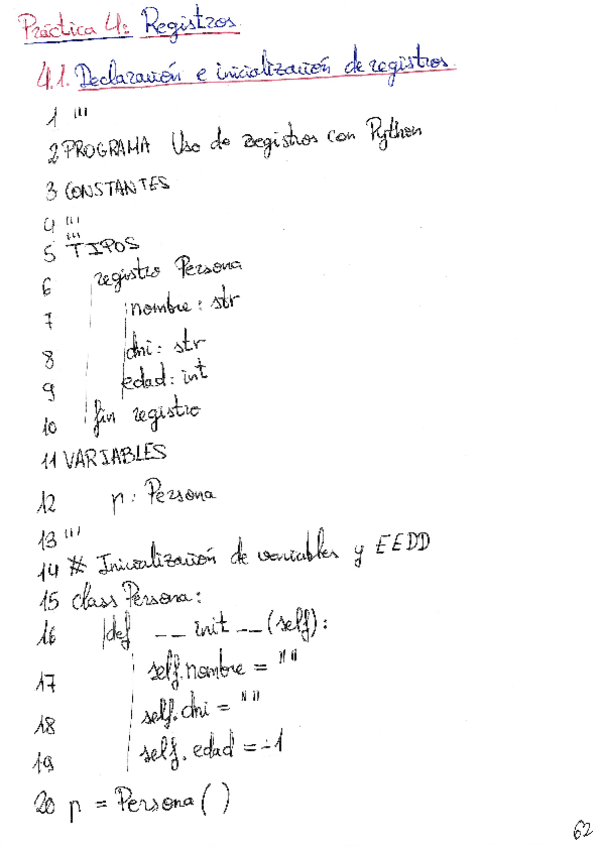 Práctica 4: Registros.
4.1. Declaración e inicialización de registros.
1 '''
2 PROGRAMA Uso de registros con Python
3 CONSTANTES
4 '''
'''
5 TIPOS
6 registro Persona
7 nombre: str
8 dni: str
9 edad: int
10 fin registro
11 VARIABLES
12 p: Persona
13 '''
14 # Inicialización de variables y EEDD
15 class Persona:
16 def __init__(self):
17 self.nombre = ""
18 self.dni = ""
19 self.edad = -1
20 p = Persona()
62